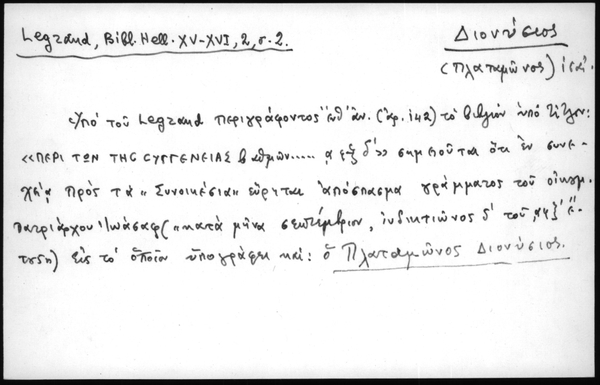 Legrand, Bibl. Hell. XV-XVI, 2, σ. 2.
Διονύσιος
(Πλαταμῶνος) ις΄.
Ὑπό τοῦ Legrand περιγράφοντος ἐνθ' ἀν. (ἀρ. 142) τό βιβλίον ὑπό τίτλον:
«ΠΕΡΙ ΤΩΝ ΤΗC CΥΓΓΕΝΕΙΑΣ βαθμῶν..... ͵αφξδ΄» σημειοῦται ὅτι ἐν συνε-
χείᾳ πρός τά «Συνοικέσια» εὕρηται ἀπόσπασμα γράμματος τοῦ οἰκουμ.
πατριάρχου Ἰωάσαφ («κατά μῆνα σεπτέμβριον, ἰνδικτιῶνος δ΄ τοῦ ͵αφξ΄ ἔ-
τους») εἰς τό ὁποῖον ὑπογράφει καί: ὁ Πλαταμῶνος Διονύσιος.